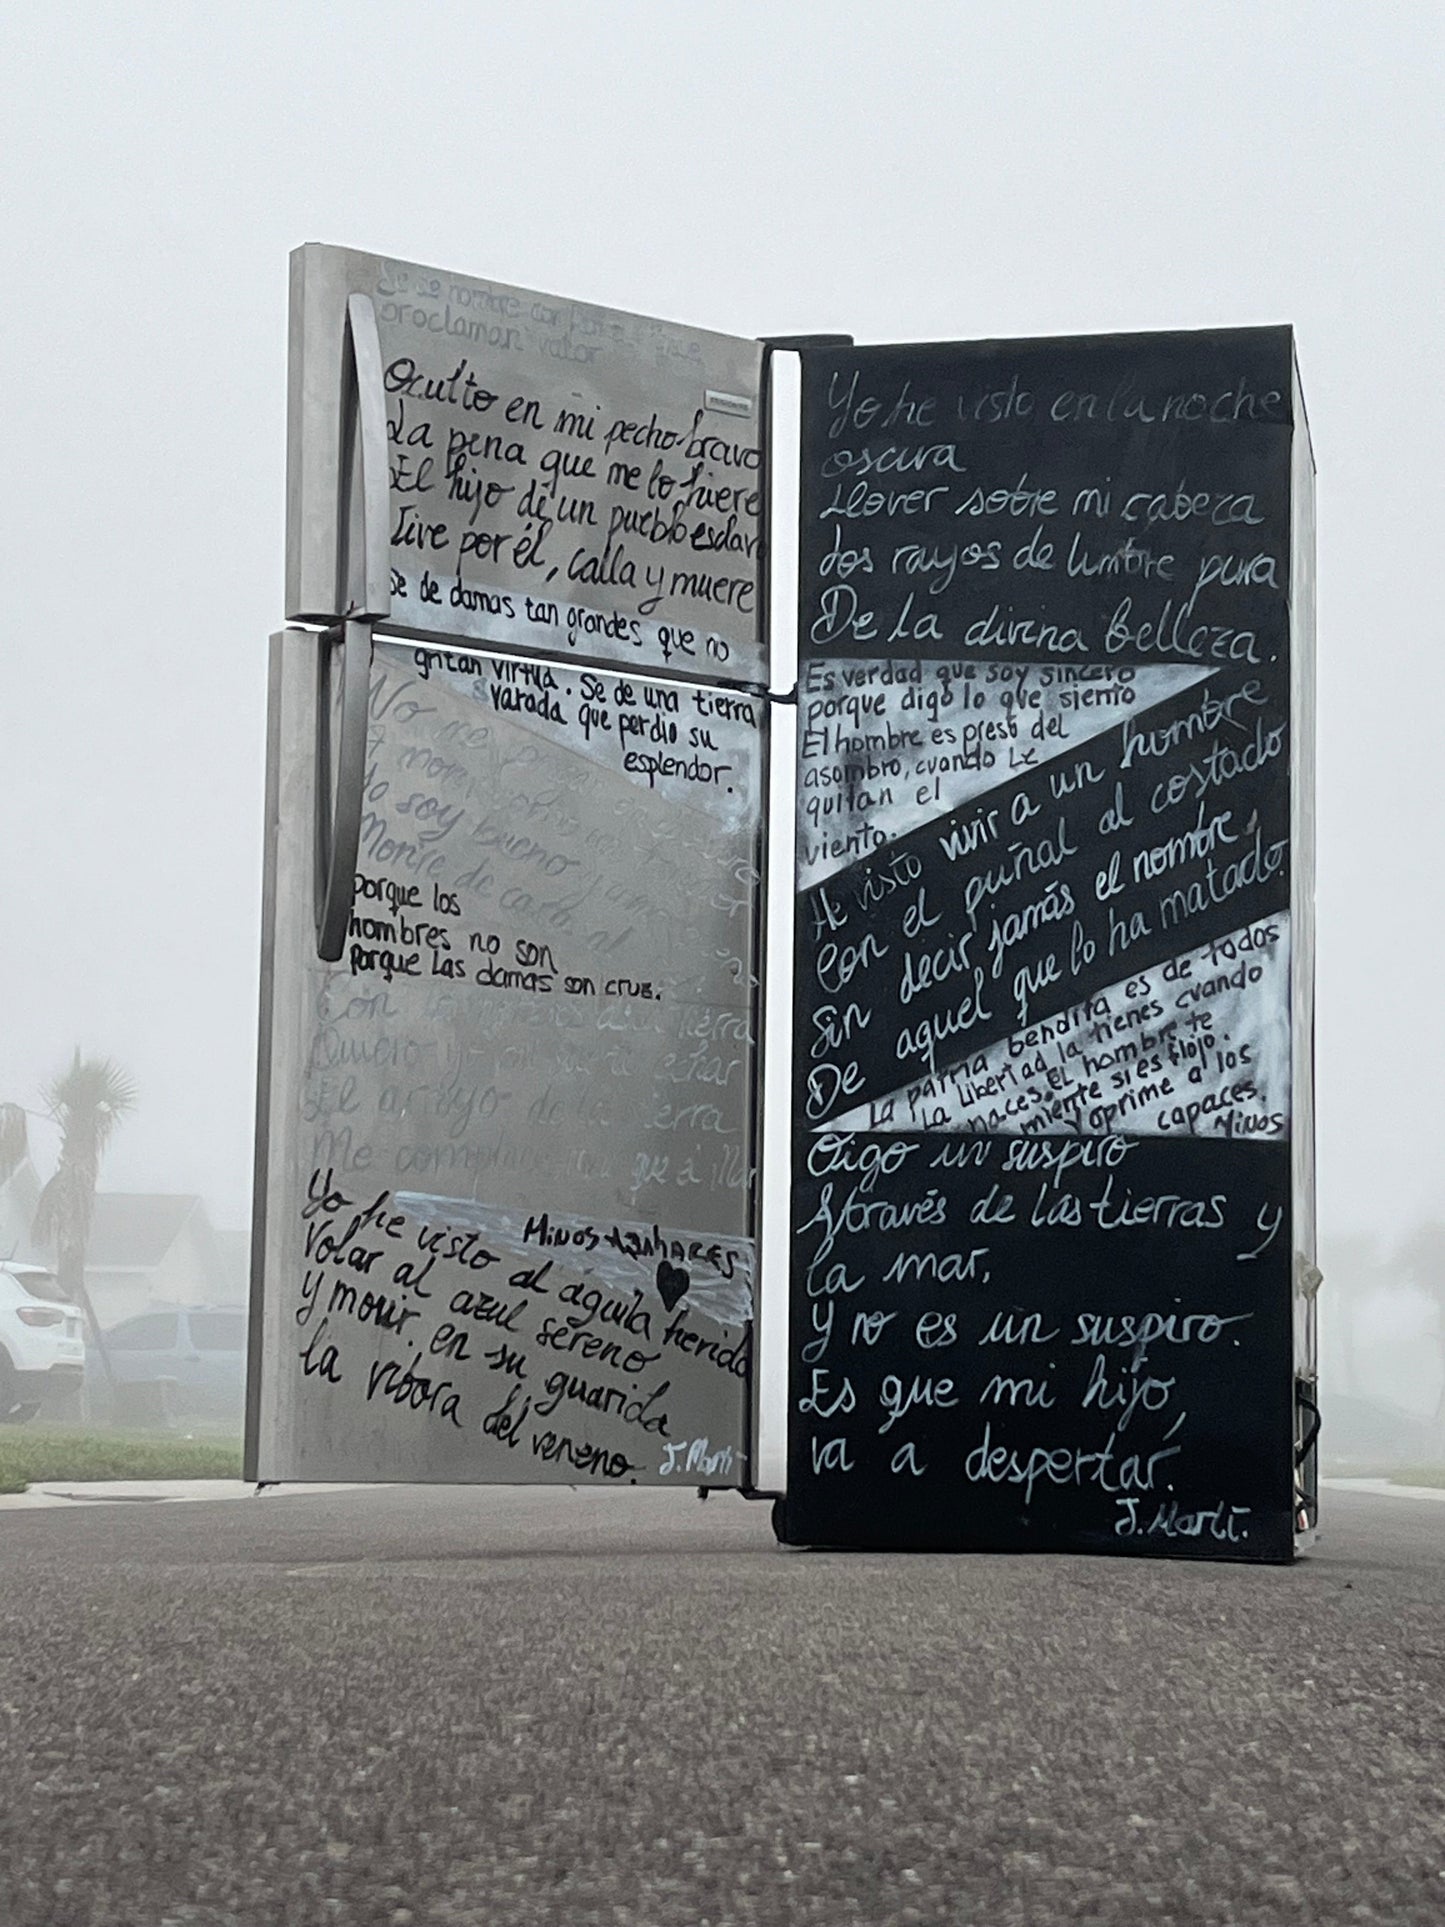 Se de nombre
proclaman valor
Oculto en mi pecho bravo
La pena que me lo hiere
El hijo de un pueblo esclavo
Vive por él, calla y muere
Se de damas tan grandes que no
gritan virtud. Se de una tierra
varada que perdio su
esplendor.
No me pongan en lo
A
Yo soy bueno y
Moriré de cara al
porque los
hombres no son
porque las damas son cruz.
Con tierra
Quiero yo mi echar
El arroyo de la sierra
Me complace que
Minos Azahares
Yo he visto al águila herida
Volar al azul sereno
Y morir en su guarida
la víbora del veneno.
J. Martí
Yo he visto en la noche
oscura
Llover sobre mi cabeza
Los rayos de lumbre pura
De la divina belleza.
Es verdad que soy sincero
porque digo lo que siento
El hombre es preso del
asombro, cuando Le
quitan el
viento.
He visto vivir a un hombre
Con el puñal al costado
Sin decir jamás el nombre,
De aquel que lo ha matado.
La patria bendita es de todos
La libertad la tienes cuando
naces. El hombre te
miente si es flojo.
Y oprime a los
capaces.
Minos
Oigo un suspiro
Através de las tierras y
la mar,
Y no es un suspiro.
Es que mi hijo,
va a despertar.
J. Martí.